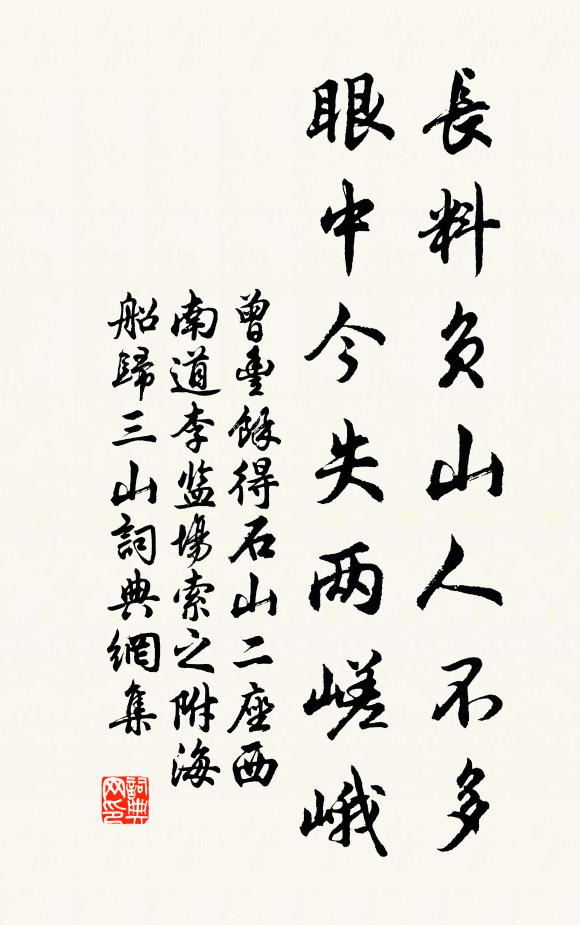 長料負山人不多
眼中今失两嵯峨
曾豊餘得石山二座西
南道李监場索之附海
船歸三山詞典網集
詞典网印